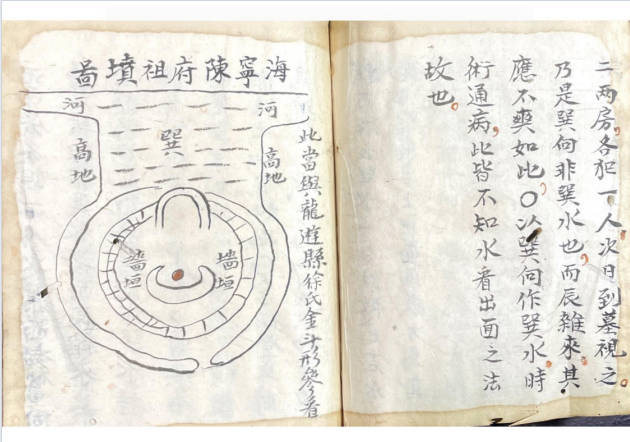 二兩房各犯一人次日到墓視之
乃是巽向非巽水也而辰雜來其
應不爽如此○以巽向作巽水時
術通病此皆不知水看出面之法
故也
海寧陳府祖墳啚
河
河
巽
高地
高地
墻垣
墻垣
此當與龍遊縣徐氏金斗形參看